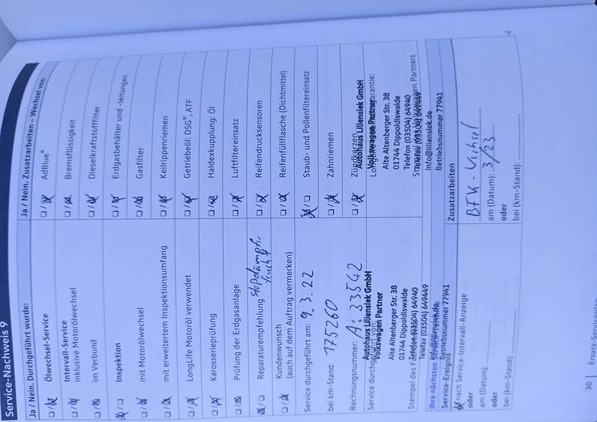 Service-Nachweis 9
Ja / Nein. Durchgeführt wurde:
Ölwechsel-Service
Intervall-Service
inklusive Motorölwechsel
im Verbund
Inspektion
mit Motorölwechsel
mit erweitertem Inspektionsumfang
LongLife Motoröl verwendet
Karosserieprüfung
Prüfung der Erdgasanlage
Reparaturempfehlung
Kundenwunsch
(auch auf dem Auftrag vermerken)
Service durchgeführt am: 9.3.22
bei km-Stand: 175260
Rechnungsnummer: A+ 33542
Autohaus Liliensiek GmbH
Volkswagen Partner
Alte Altenberger Str. 38
01744 Dippoldiswalde
Telefon (03504) 64940
Telefax (03504) 649449
Betriebsnummer 77941
Service-Ereignis
nach Service-Intervall-Anzeige
oder
am (Datum):
oder
bei (km-Stand):
Ja / Nein. Zusatzarbeiten – Wechsel von:
AdBlue®
Bremsflüssigkeit
Dieselkraftstofffilter
Erdgasbehälter und -leitungen
Gasfilter
Keilrippenriemen
Getriebeöl: DSG®, ATF
Haldexkupplung: Öl
Luftfiltereinsatz
Reifendrucksensoren
Reifenfüllflasche (Dichtmittel)
Staub- und Pollenfiltereinsatz
Zahnriemen
Zündkerzen
Autohaus Liliensiek GmbH
Volkswagen Partner
Alte Altenberger Str. 38
01744 Dippoldiswalde
Telefon (03504) 64940
Telefax (03504) 649449
info@liliensiek.de
Betriebsnummer 77941
Zusatzarbeiten
BFK-Wechsel
am (Datum): 3/23
oder
bei (km-Stand):
30